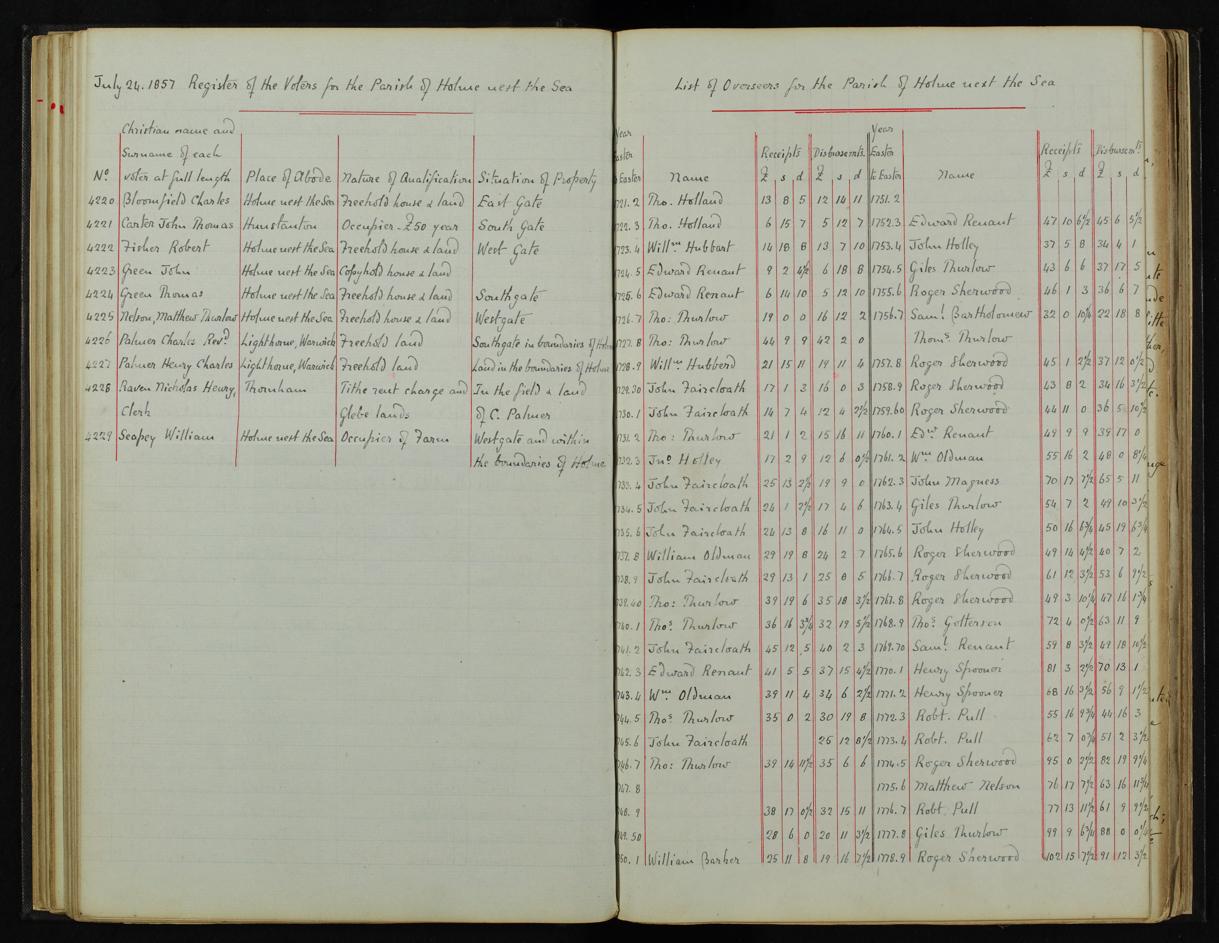 July 24. 1857 Register of the Voters for the Parish of Holme next the Sea
Christian name and
Surname of each
No. voter at full length Place of Abode Nature of Qualification Situation of Property
4220 Bloomfield Charles Holme next the Sea Freehold house & land East Gate
4221 Carter John Thomas Hunstanton Occupier - £50 year South Gate
4222 Fisher Robert Holme next the Sea Freehold house & land West Gate
4223 Green John Holme next the Sea Copyhold house & land
4224 Green Thomas Holme next the Sea Freehold house & land Southgate
4225 Nelson, Matthew Thurlow Holme next the Sea Freehold house & land Westgate
4226 Palmer Charles Revd. Lighthorne, Warwick Freehold land Southgate in boundaries of Holme
4227 Palmer Henry Charles Lighthorne, Warwick Freehold land Land in the boundaries of Holme
4228 Raven Nicholas Henry, Thornham Tithe rent charge and In the field & land
Clerk Glebe lands of C. Palmer
4229 Seapey William Holme next the Sea Occupier of Farm Westgate and within
the boundaries of Holme
List of Overseers for the Parish of Holme next the Sea
Year Year
Easter Receipts Disbursemts. Easter Receipts Disbursemts.
to Easter Name £ s d £ s d to Easter Name £ s d £ s d
1721.2 Tho. Holland 13 8 5 12 14 11 1751.2
1722.3 Tho. Holland 6 15 7 5 12 7 1752.3 Edward Renant 47 10 6½ 45 6 5½
1723.4 Willm. Hubbart 14 18 8 13 7 10 1753.4 John Holley 37 5 8 34 4 1
1724.5 Edward Renant 9 2 4½ 6 18 8 1754.5 Giles Thurlow 43 6 6 37 17 5
1725.6 Edward Renant 6 14 10 5 12 10 1755.6 Roger Sherwood 46 1 3 36 6 7
1726.7 Tho: Thurlow 19 0 0 16 12 2 1756.7 Saml. Bartholomew 32 0 10¼ 22 18 8
1727.8 Tho: Thurlow 44 9 9 42 2 0 Thoms. Thurlow
1728.9 Willm. Hubberd 21 15 11 19 11 4 1757.8 Roger Sherwood 45 1 2½ 37 12 0½
1729.30 John Faircloath 17 1 3 16 0 3 1758.9 Roger Sherwood 43 8 2 34 16 3½
1730.1 John Faircloath 14 7 4 12 4 2½ 1759.60 Roger Sherwood 44 11 0 36 5 10½
1731.2 Tho: Thurlow 21 1 2 15 16 11 1760.1 Edw. Renant 49 9 9 39 17 0
1732.3 Jno. Holley 17 2 9 12 6 0½ 1761.2 Wm. Oldman 55 16 2 48 0 8¼
1733.4 John Faircloath 25 13 2½ 19 9 0 1762.3 John Magness 70 17 7½ 65 5 11
1734.5 John Faircloath 24 1 2½ 17 4 6 1763.4 Giles Thurlow 54 7 2 49 10 3½
1735.6 John Faircloath 24 13 8 16 11 0 1764.5 John Holley 50 16 6¾ 45 19 6¾
1737.8 William Oldman 29 19 8 24 2 7 1765.6 Roger Sherwood 49 14 4½ 40 7 2
1738.9 John Faircloath 29 13 1 25 8 5 1766.7 Roger Sherwood 61 12 3½ 53 6 9½
1739.40 Tho: Thurlow 39 19 6 35 18 3½ 1767.8 Roger Sherwood 49 3 10¼ 47 16 1¾
1740.1 Thos. Thurlow 36 16 3¾ 32 19 5½ 1768.9 Thos. Gotterson 72 4 0½ 63 11 9
1741.2 John Faircloath 45 12 5 40 2 3 1769.70 Saml. Renant 59 8 3½ 49 18 10½
1742.3 Edward Renant 41 5 5 37 15 4½ 1770.1 Henry Spooner 81 3 2½ 70 13 1
1743.4 Wm. Oldman 39 11 4 34 6 2½ 1771.2 Henry Spooner 68 16 3½ 56 9 1½
1744.5 Thos. Thurlow 35 0 2 30 19 8 1772.3 Robt. Pull 55 16 9¾ 44 16 3
1745.6 John Faircloath 25 12 8½ 1773.4 Robt. Pull 62 7 0¾ 51 2 3½
1746.7 Tho: Thurlow 39 14 11½ 35 6 6 1774.5 Roger Sherwood 95 0 2½ 82 19 9¼
1747.8 1775.6 Matthew Nelson 76 17 7½ 63 16 11¾
1748.9 38 17 0½ 32 15 11 1776.7 Robt. Pull 77 13 11½ 61 9 9½
1749.50 28 6 0 20 11 3½ 1777.8 Giles Thurlow 99 9 6¾ 88 0 0¼
1750.1 William Barker 25 11 8 19 16 7½ 1778.9 Roger Sherwood 102 15 7½ 91 12 3½